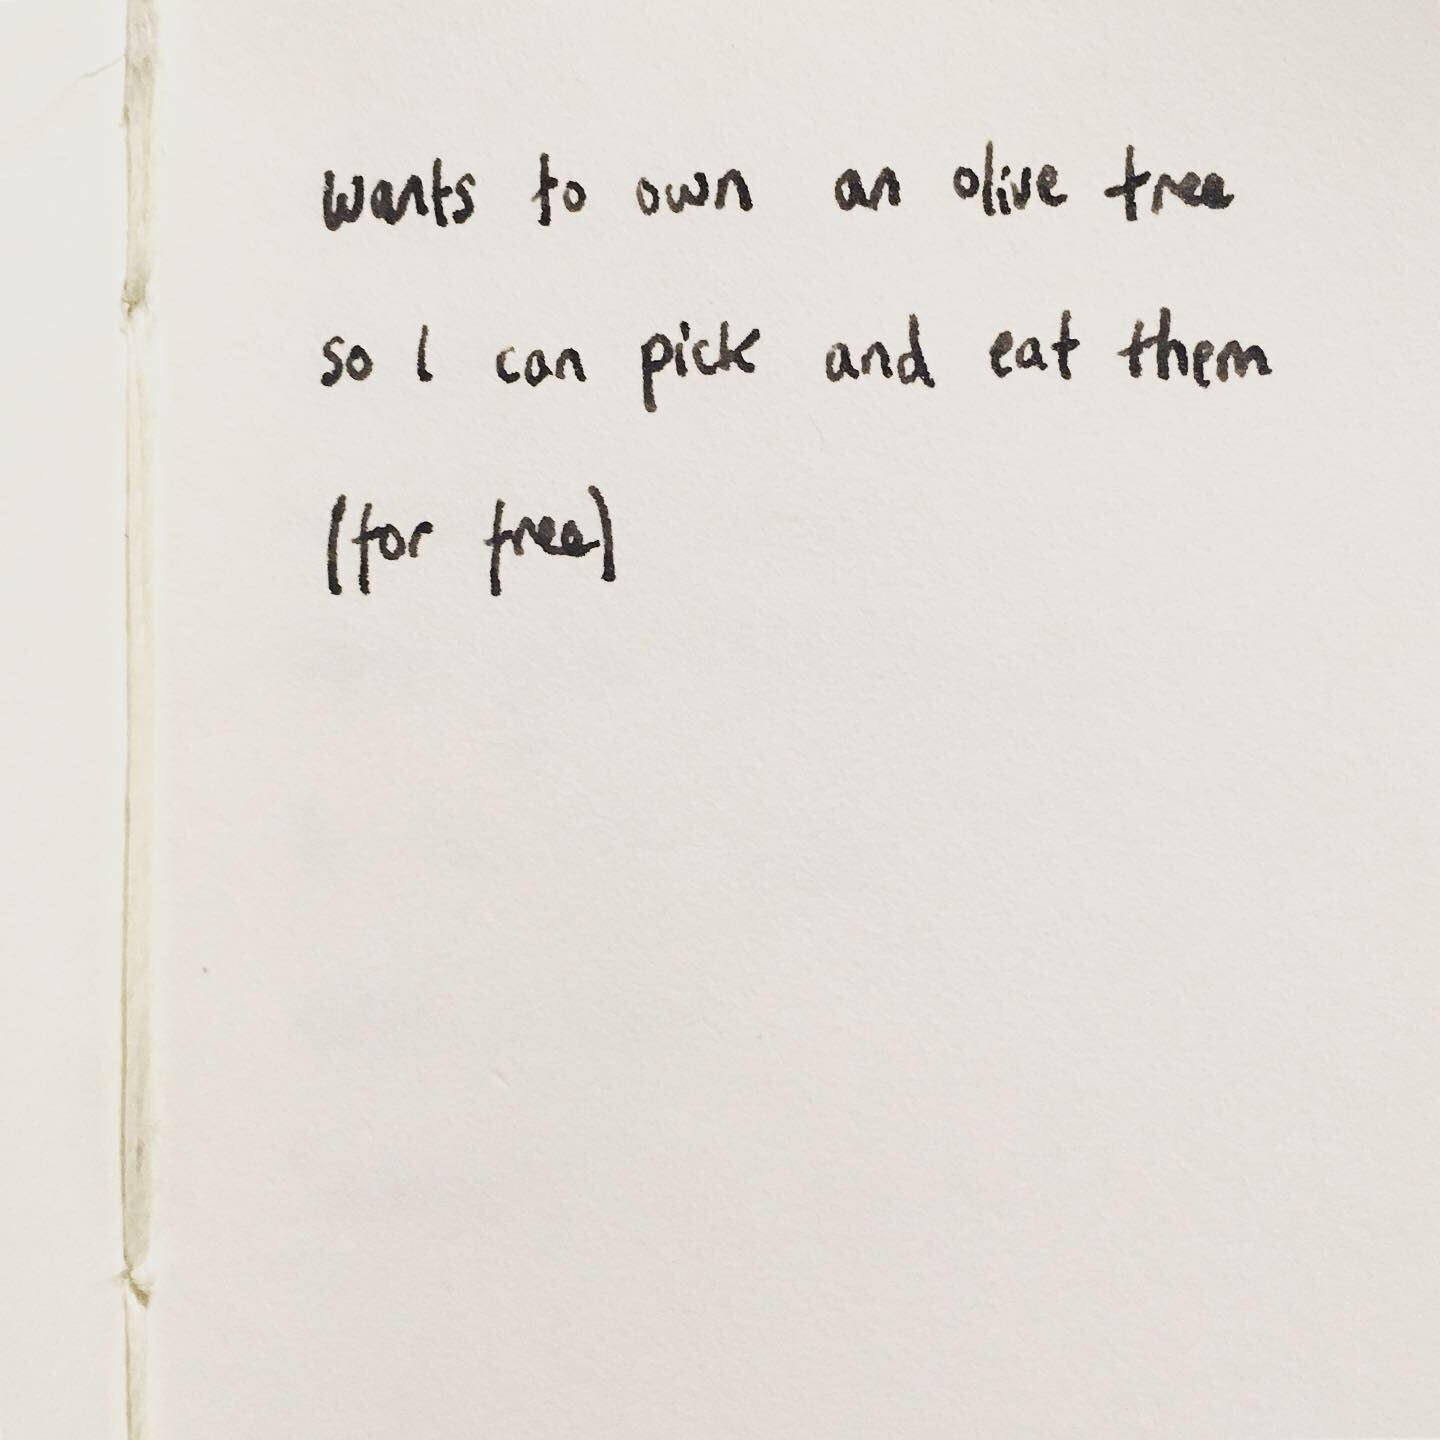 wants to own an olive tree
so I can pick and eat them
(for free)